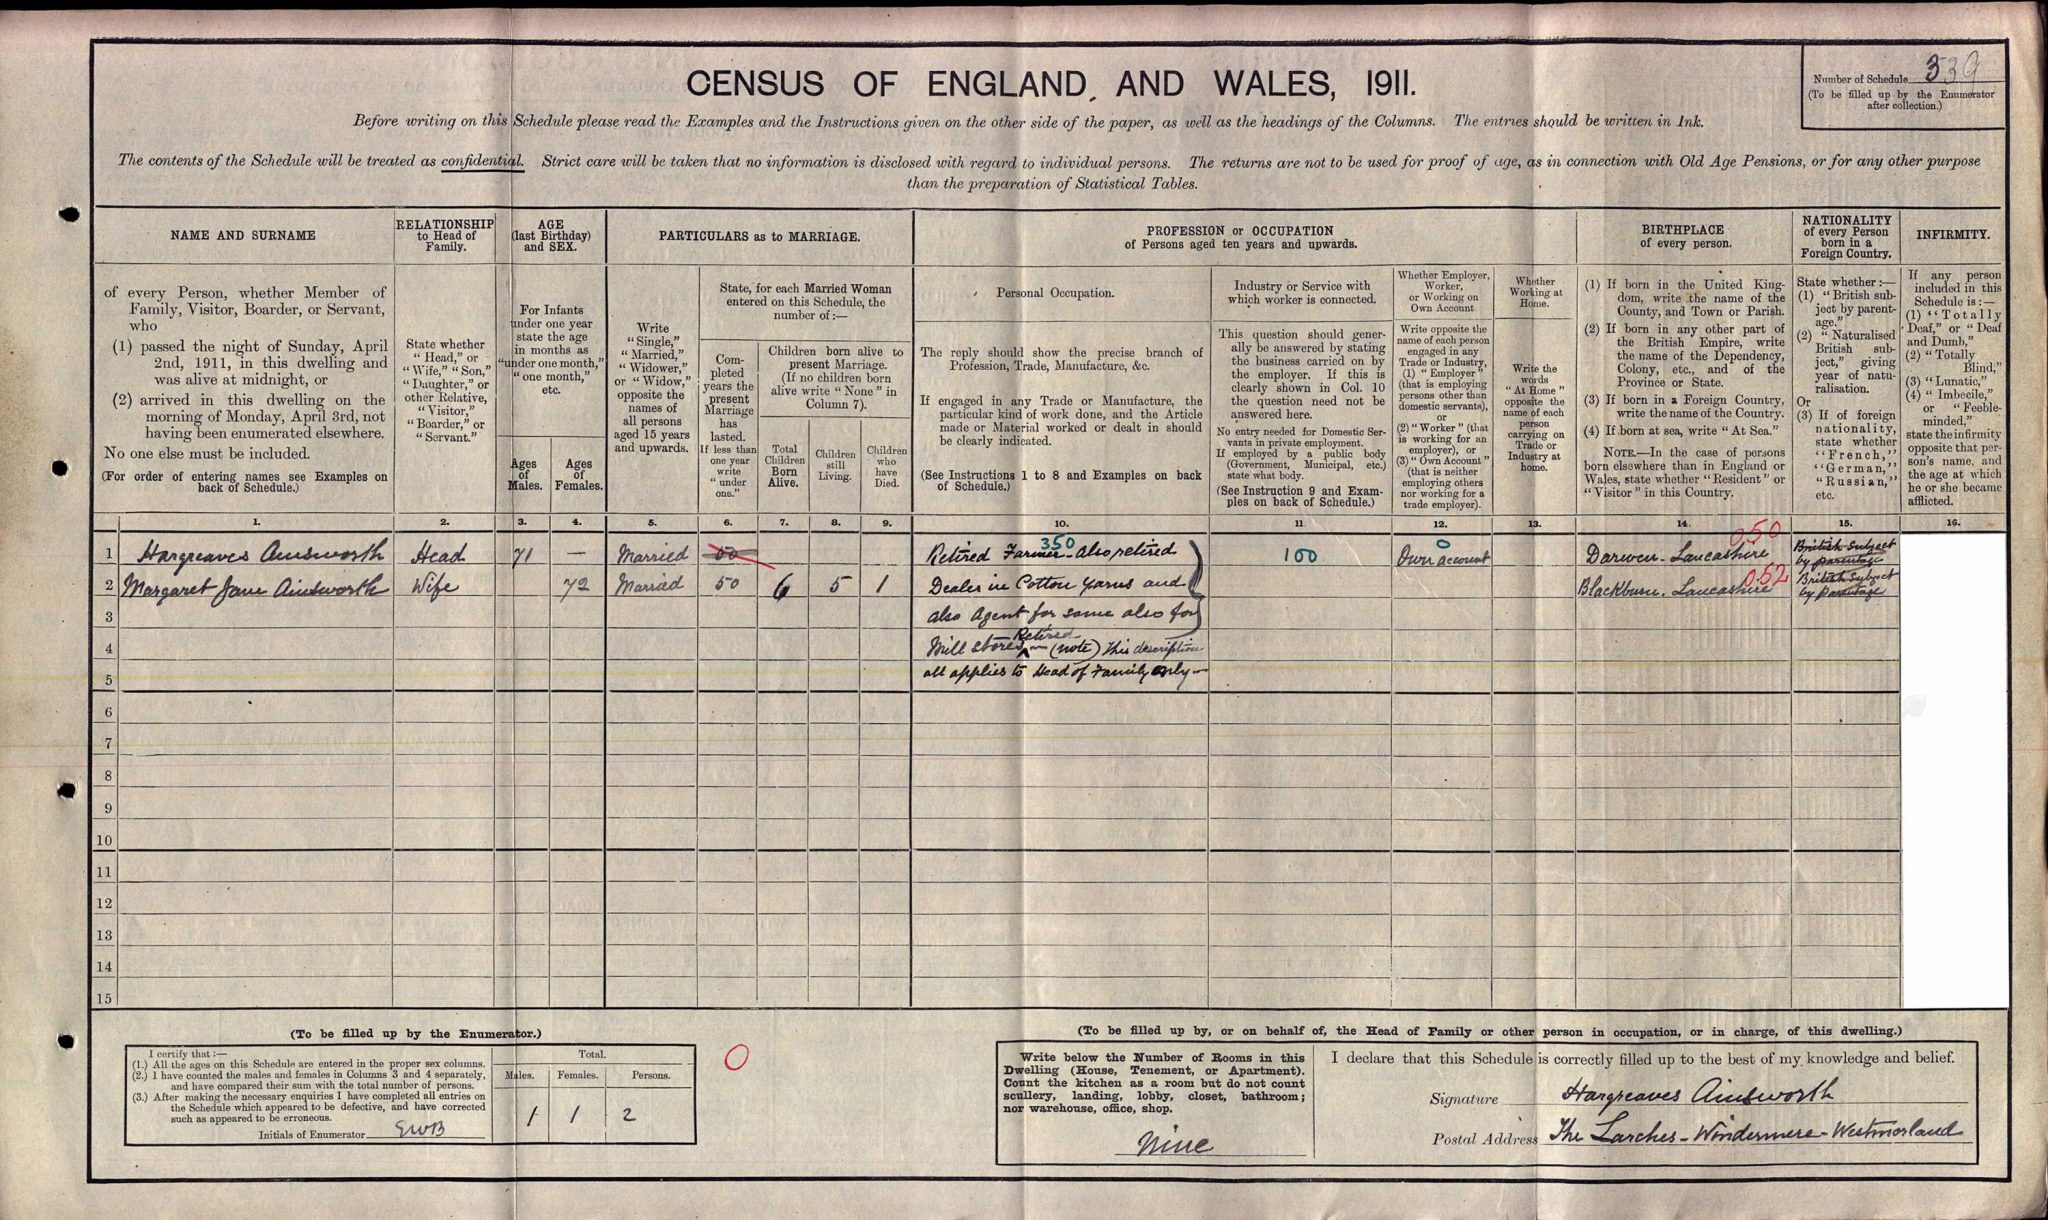 CENSUS OF ENGLAND AND WALES, 1911.
Number of Schedule 339
(To be filled up by the Enumerator
after collection.)
Before writing on this Schedule please read the Examples and the Instructions given on the other side of the paper, as well as the headings of the Columns. The entries should be written in Ink.
The contents of the Schedule will be treated as confidential. Strict care will be taken that no information is disclosed with regard to individual persons. The returns are not to be used for proof of age, as in connection with Old Age Pensions, or for any other purpose
than the preparation of Statistical Tables.
NAME AND SURNAME
of every Person, whether Member of
Family, Visitor, Boarder, or Servant,
who
(1) passed the night of Sunday, April
2nd, 1911, in this dwelling and
was alive at midnight, or
(2) arrived in this dwelling on the
morning of Monday, April 3rd, not
having been enumerated elsewhere.
No one else must be included.
(For order of entering names see Examples on
back of Schedule.)
RELATIONSHIP
to Head of
Family.
State whether
"Head," or
"Wife," "Son,"
"Daughter," or
other Relative,
"Visitor,"
"Boarder," or
"Servant."
AGE
(last Birthday)
and SEX.
For Infants
under one year
state the age
in months as
"under one month,"
"one month,"
etc.
Ages
of
Males.
Ages
of
Females.
PARTICULARS as to MARRIAGE.
Write
"Single,"
"Married,"
"Widower,"
or "Widow,"
opposite the
names of
all persons
aged 15 years
and upwards.
State, for each Married Woman
entered on this Schedule, the
number of:—
Com-
pleted
years the
present
Marriage
has
lasted.
If less than
one year
write
"under
one."
Children born alive to
present Marriage.
(If no children born
alive write "None" in
Column 7).
Total
Children
Born
Alive.
Children
still
Living.
Children
who
have
Died.
PROFESSION or OCCUPATION
of Persons aged ten years and upwards.
Personal Occupation.
The reply should show the precise branch of
Profession, Trade, Manufacture, &c.
If engaged in any Trade or Manufacture, the
particular kind of work done, and the Article
made or Material worked or dealt in should
be clearly indicated.
(See Instructions 1 to 8 and Examples on back
of Schedule.)
Industry or Service with
which worker is connected.
This question should gener-
ally be answered by stating
the business carried on by
the employer. If this is
clearly shown in Col. 10
the question need not be
answered here.
No entry needed for Domestic Ser-
vants in private employment.
If employed by a public body
(Government, Municipal, etc.)
state what body.
(See Instruction 9 and Exam-
ples on back of Schedule.)
Whether Employer,
Worker,
or Working on
Own Account
Write opposite the
name of each person
engaged in any
Trade or Industry,
(1) "Employer"
(that is employing
persons other than
domestic servants),
or
(2) "Worker" (that
is working for an
employer), or
(3) "Own Account"
(that is neither
employing others
nor working for a
trade employer).
Whether
Working at
Home.
Write the
words
"At Home"
opposite the
name of each
person
carrying on
Trade or
Industry at
home.
BIRTHPLACE
of every person.
(1) If born in the United King-
dom, write the name of the
County, and Town or Parish.
(2) If born in any other part of
the British Empire, write
the name of the Dependency,
Colony, etc., and of the
Province or State.
(3) If born in a Foreign Country,
write the name of the Country.
(4) If born at sea, write "At Sea."
NOTE.—In the case of persons
born elsewhere than in England or
Wales, state whether "Resident" or
"Visitor" in this Country.
NATIONALITY
of every Person
born in a
Foreign Country.
State whether:—
(1) "British sub-
ject by parent-
age."
(2) "Naturalised
British sub-
ject," giving
year of natu-
ralisation.
Or
(3) If of foreign
nationality,
state whether
"French,"
"German,"
"Russian,"
etc.
INFIRMITY.
If any person
included in this
Schedule is:—
(1) "Totally
Deaf," or "Deaf
and Dumb,"
(2) "Totally
Blind,"
(3) "Lunatic,"
(4) "Imbecile,"
or "Feeble-
minded,"
state the infirmity
opposite that per-
son's name, and
the age at which
he or she became
afflicted.
1. 2. 3. 4. 5. 6. 7. 8. 9. 10. 11 12. 13. 14. 15. 16.
050
350 0
1 Hargreaves Ainsworth Head 71 — Married 50 Retired Farmer - Also retired 100 Own account Darwen - Lancashire British Subject by parentage
052
2 Margaret Jane Ainsworth Wife 72 Married 50 6 5 1 Dealer in Cotton Yarns and Blackburn. Lancashire British Subject by parentage
3 also Agent for same also for
Retired
4 Mill stores (note) This description
5 all applies to Head of Family only -
6
7
8
9
10
11
12
13
14
15
(To be filled up by the Enumerator.)
I certify that:—
(1.) All the ages on this Schedule are entered in the proper sex columns.
(2.) I have counted the males and females in Columns 3 and 4 separately,
and have compared their sum with the total number of persons.
(3.) After making the necessary enquiries I have completed all entries on
the Schedule which appeared to be defective, and have corrected
such as appeared to be erroneous.
Initials of Enumerator EWB
Total.
Males. Females. Persons.
1 1 2
0
(To be filled up by, or on behalf of, the Head of Family or other person in occupation, or in charge, of this dwelling.)
Write below the Number of Rooms in this
Dwelling (House, Tenement, or Apartment).
Count the kitchen as a room but do not count
scullery, landing, lobby, closet, bathroom;
nor warehouse, office, shop.
Nine
I declare that this Schedule is correctly filled up to the best of my knowledge and belief.
Signature Hargreaves Ainsworth
Postal Address The Larches - Windermere - Westmorland